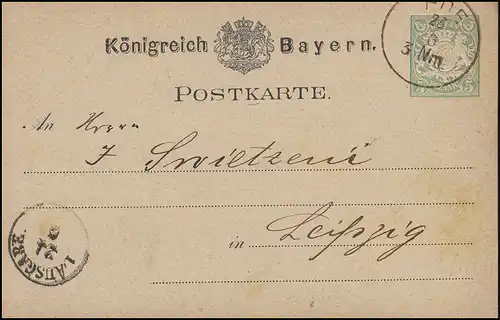 Königreich Bayern.
POSTKARTE.
An Herrn
in Leipzig
1. AUSGABE
23
3 Nm
5